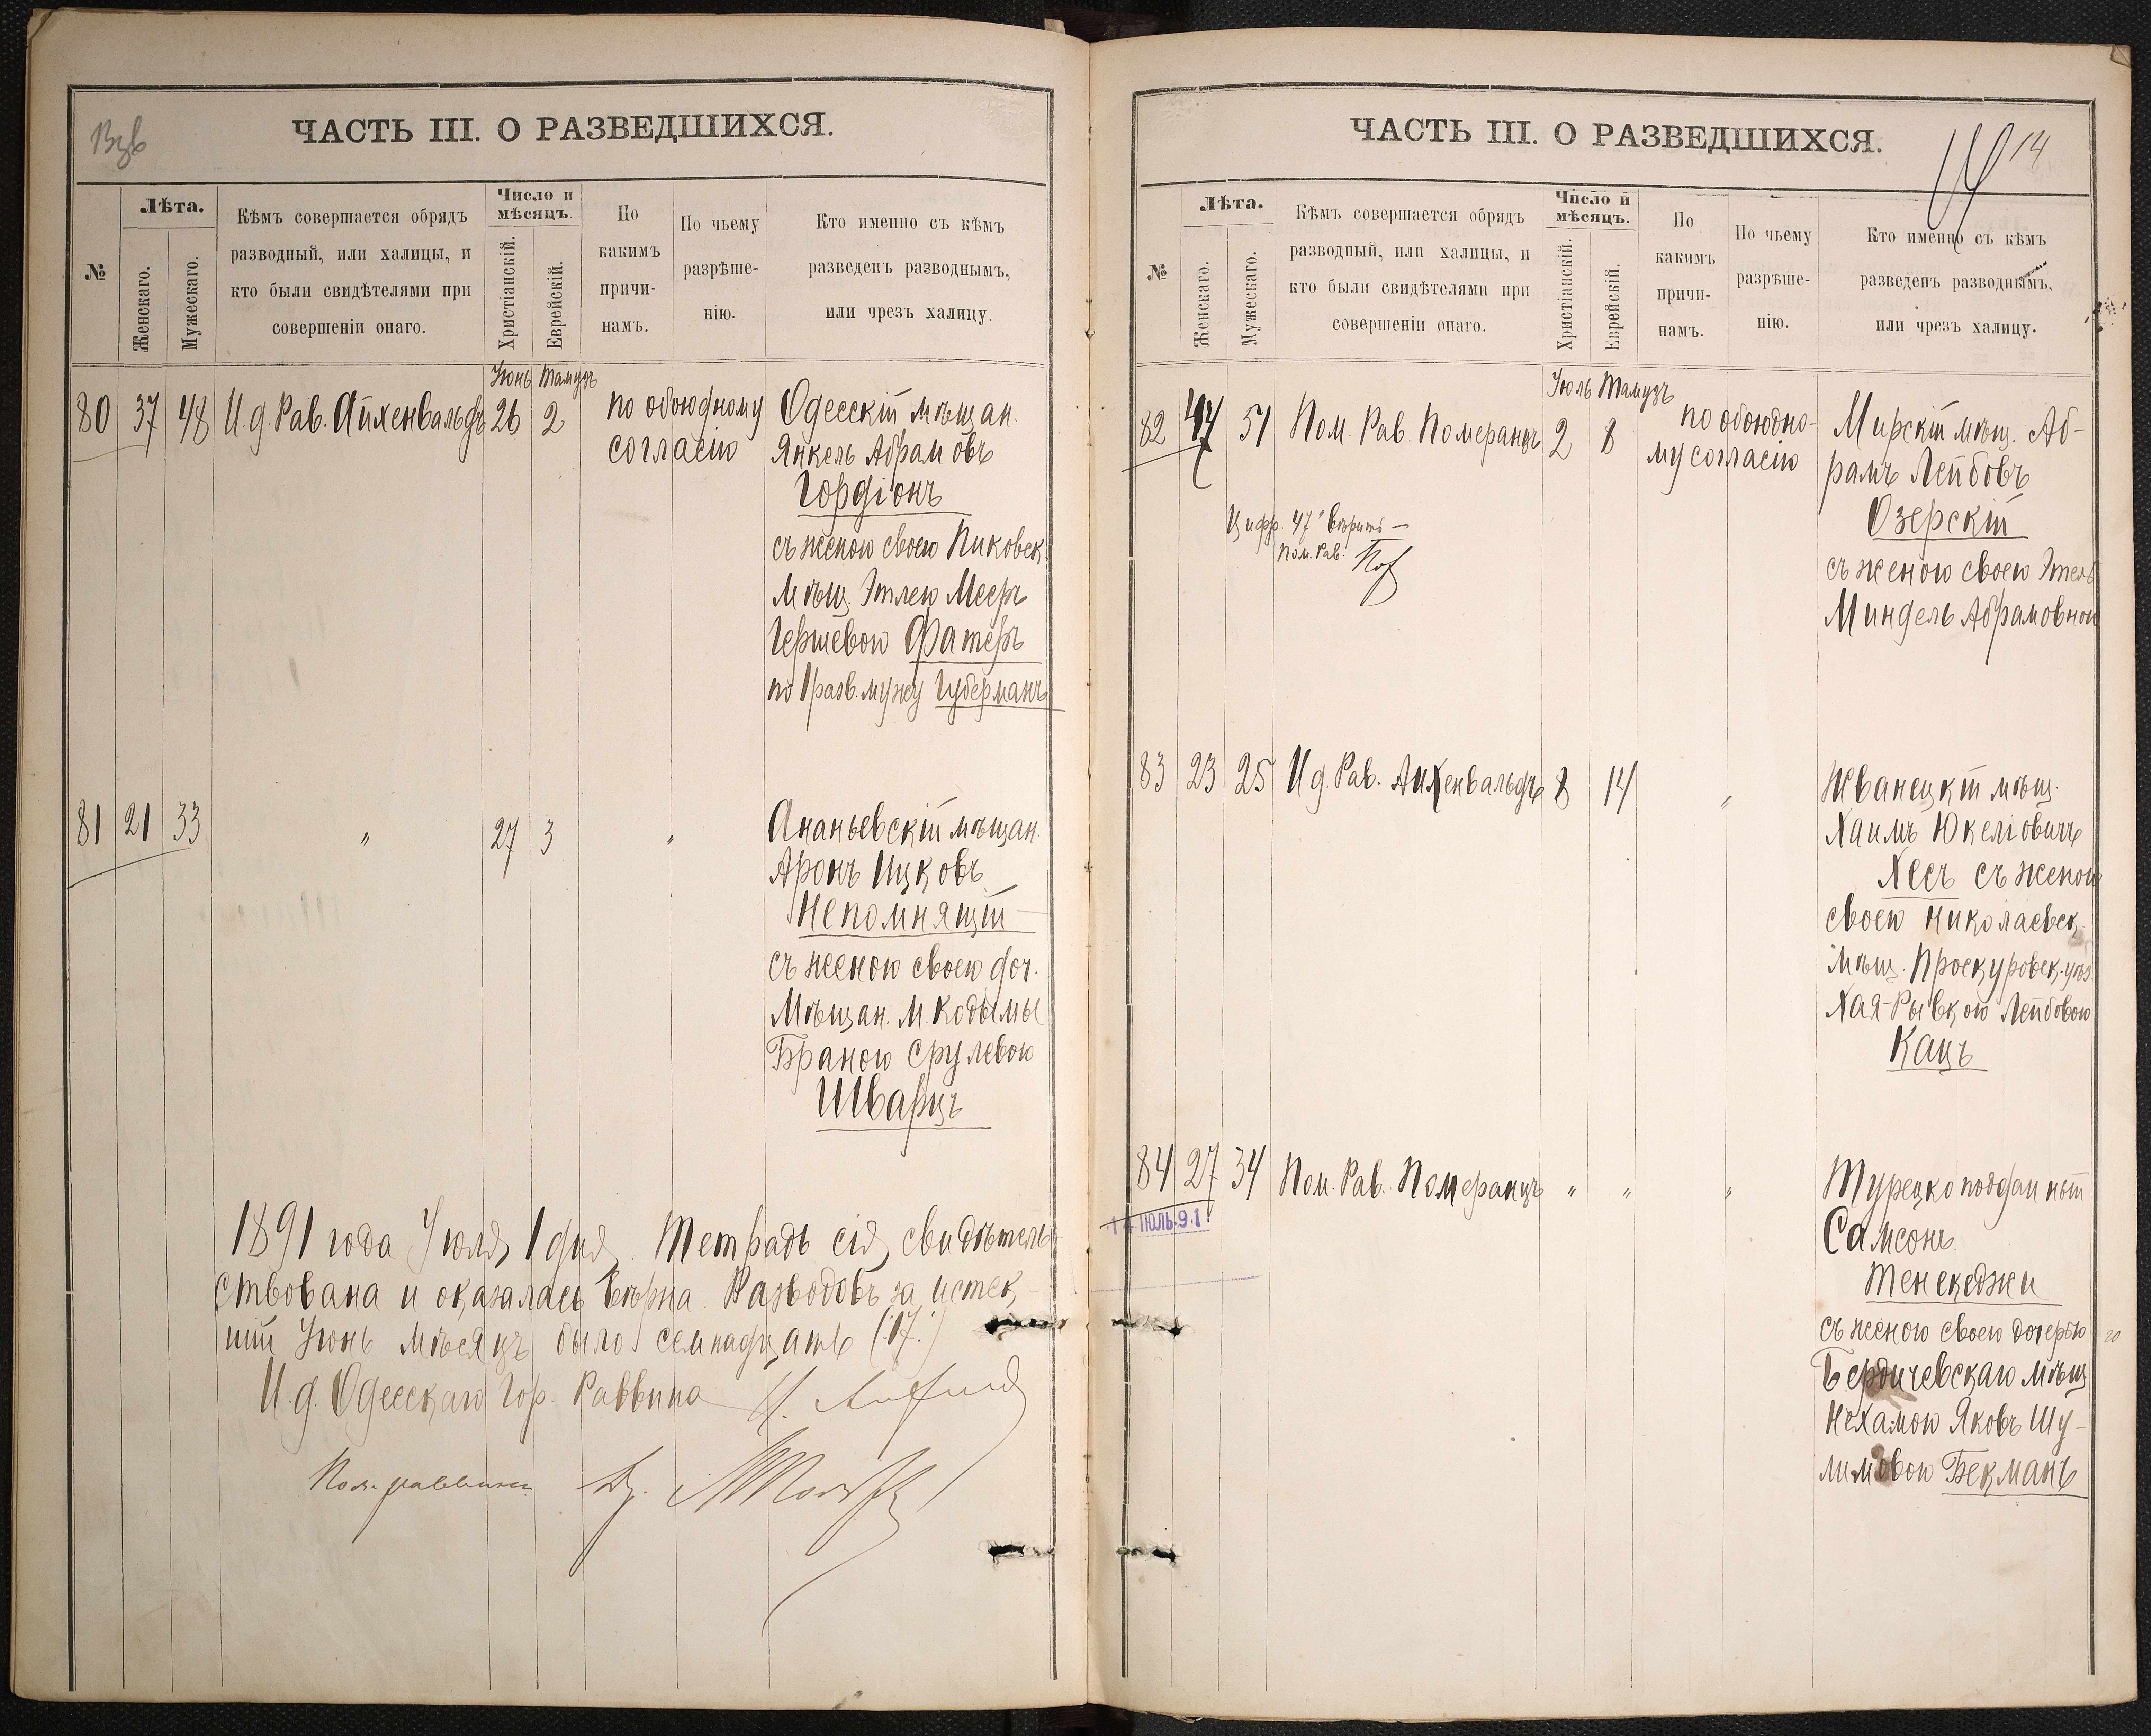 Взв
ЧАСТЬ III. О РАЗВЕДШИХСЯ.
№
Лѣта.
Женскаго.
Мужескаго.
Кѣмъ совершается обрядъ
разводный, или халицы, и
кто были свидѣтелями при
совершеніи онаго.
Число и
мѣсяцъ.
Христіанскій.
Еврейскій.
По
какимъ
причи-
намъ.
По чьему
разрѣше-
нію.
Кто именно съ кѣмъ
разведенъ разводнымъ,
или чрезъ халицу.
Іюнь Тамузъ
80 37 48 И.д. Рав. Айхенвальдъ 26 2 по обоюдному Одесскій мѣщан.
согласію Янкель Абрамовъ
Гордіонъ
съ женою своею Пиковск.
мѣщ. Этлею Меер
Гершевою Фатеръ
по 1 разв. мужу Губерманъ
81 21 33 " 27 3 " Ананьевскій мѣщан.
Аронъ Ицковъ
Непомнящій
съ женою своею доч.
мѣщан. м. Кодымы
Браною Срулевою
Шварцъ
1891 года Іюля 1 дня. Тетрадь сія свидѣтель
ствована и оказалась вѣрна. Разводовъ за истек
шій Іюнь мѣсяцъ было семнадцать (17.)
И.д. Одесскаго Гор. Раввина
Пом. раввина Др.
ЧАСТЬ III. О РАЗВЕДШИХСЯ.
14
№
Лѣта.
Женскаго.
Мужескаго.
Кѣмъ совершается обрядъ
разводный, или халицы, и
кто были свидѣтелями при
совершеніи онаго.
Число и
мѣсяцъ.
Христіанскій.
Еврейскій.
По
какимъ
причи-
намъ.
По чьему
разрѣше-
нію.
Кто именно съ кѣмъ
разведенъ разводнымъ,
или чрезъ халицу.
Іюль Тамузъ
82 47 51 Пом. Рав. Померанцъ 2 8 по обоюдно- Мирскій мѣщ. Аб-
му согласію рамъ Лейбовъ
Озерскій
Цифр. 47 вѣрить —
Пом. Рав.
съ женою своею Этель
Миндель Абрамовною
83 23 25 И.д. Рав. Айхенвальдъ 8 14 " Жванецкій мѣщ.
Хаимъ Юкеліовичъ
Хесъ съ женою
своею Николаевск.
мѣщ. Проскуровск. уѣз.
Хая-Рывкою Лейбовою
Кацъ
84 27 34 Пом. Рав. Померанцъ " " " Турецко подданный
1 ІЮЛЬ.91.
Самсонъ
Тенекеджи
съ женою своею дочерью
20
Бердичевскаго мѣщ
Нехамою Яковъ Шу-
лимовою Бекманъ